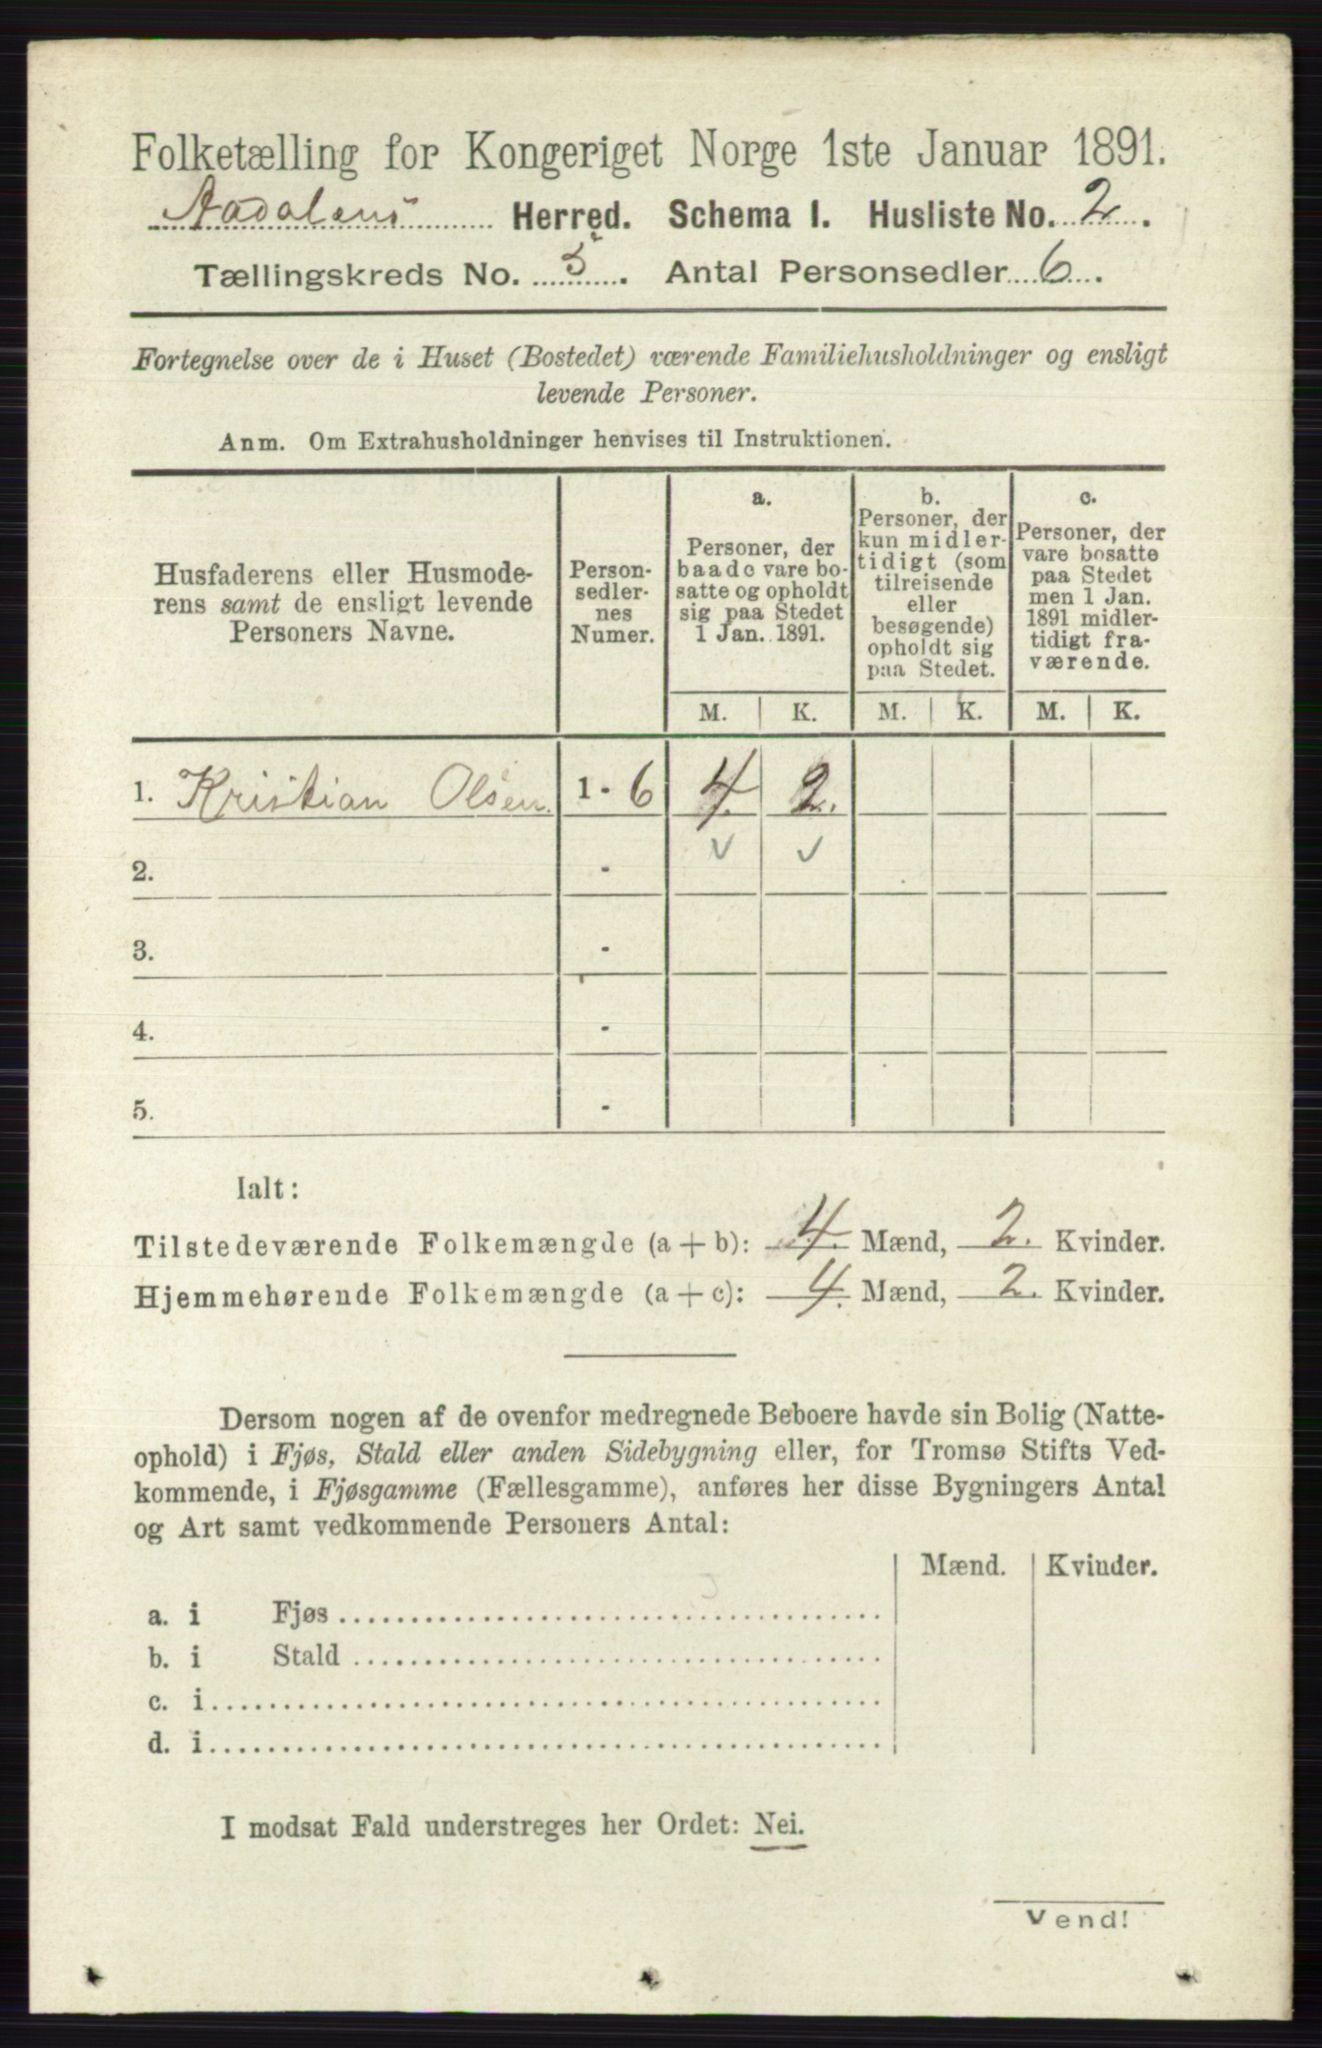 Folketælling for Kongeriget Norge 1ste Januar 1891.
Aadalens Herred. Schema I. Husliste No. 2.
Tællingskreds No. 5. Antal Personsedler 6.
Fortegnelse over de i Huset (Bostedet) værende Familiehusholdninger og ensligt
levende Personer.
Anm. Om Extrahusholdninger henvises til Instruktionen.
Husfaderens eller Husmode-
rens samt de ensligt levende
Personers Navne.
Person-
sedler-
nes
Numer.
a.
Personer, der
baade vare bo-
satte og opholdt
sig paa Stedet
1 Jan. 1891.
b.
Personer, der
kun midler-
tidigt (som
tilreisende
eller
besøgende)
opholdt sig
paa Stedet.
c.
Personer, der
vare bosatte
paa Stedet
men 1 Jan.
1891 midler-
tidigt fra-
værende.
M. K. M. K. M. K.
1. Kristian Olsen. 1 - 6 4. 2.
2. - ✓ ✓
3. -
4. -
5. -
Ialt:
Tilstedeværende Folkemængde (a + b): 4. Mænd, 2. Kvinder.
Hjemmehørende Folkemængde (a + c): 4. Mænd, 2. Kvinder.
Dersom nogen af de ovenfor medregnede Beboere havde sin Bolig (Natte-
ophold) i Fjøs, Stald eller anden Sidebygning eller, for Tromsø Stifts Ved-
kommende, i Fjøsgamme (Fællesgamme), anføres her disse Bygningers Antal
og Art samt vedkommende Personers Antal:
Mænd. Kvinder.
a. i Fjøs
b. i Stald
c. i
d. i
I modsat Fald understreges her Ordet: Nei.
Vend!